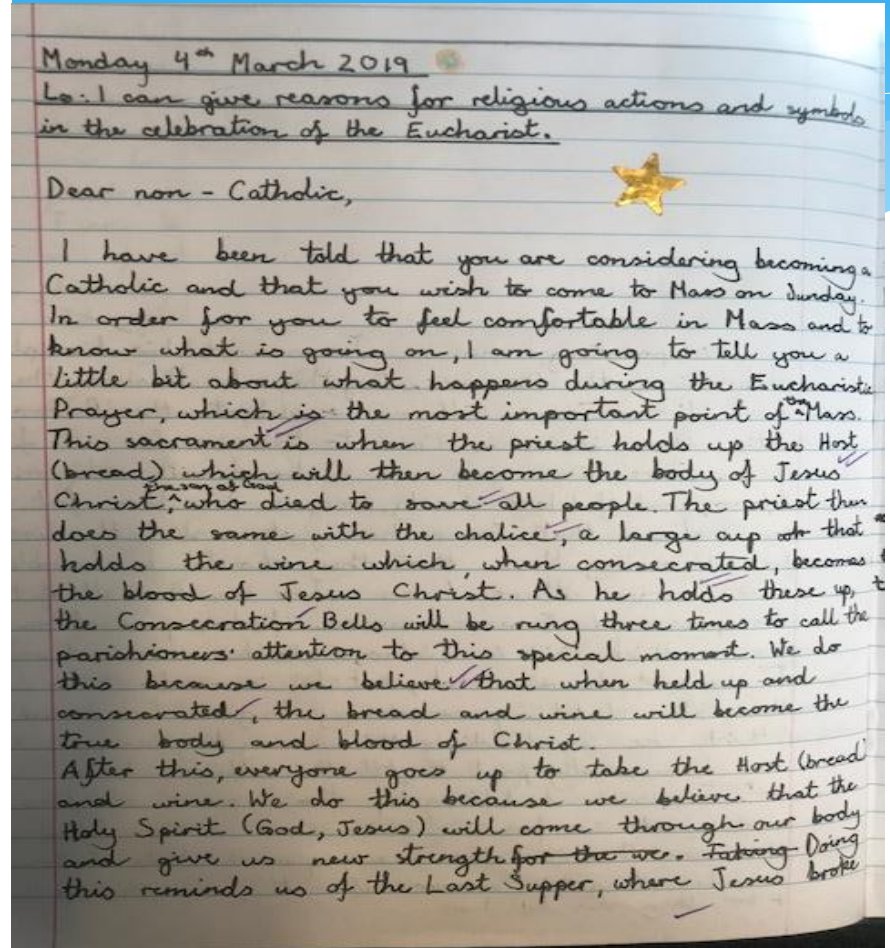 Monday 4th March 2019
Lo: I can give reasons for religious actions and symbols
in the celebration of the Eucharist.
Dear non - Catholic,
I have been told that you are considering becoming a
Catholic and that you wish to come to Mass on Sunday.
In order for you to feel comfortable in Mass and to
know what is going on, I am going to tell you a
little bit about what happens during the Eucharistic
Prayer, which is the most important point of the Mass.
This sacrament is when the priest holds up the Host
(bread) which will then become the body of Jesus
Christ, the son of God who died to save all people. The priest then
does the same with the chalice, a large cup that
holds the wine which, when consecrated, becomes
the blood of Jesus Christ. As he holds these up,
the Consecration Bells will be rung three times to call the
parishioners' attention to this special moment. We do
this because we believe that when held up and
consecrated, the bread and wine will become the
true body and blood of Christ.
After this, everyone goes up to take the Host (bread)
and wine. We do this because we believe that the
Holy Spirit (God, Jesus) will come through our body
and give us new strength for the we. Taking Doing
this reminds us of the Last Supper, where Jesus broke